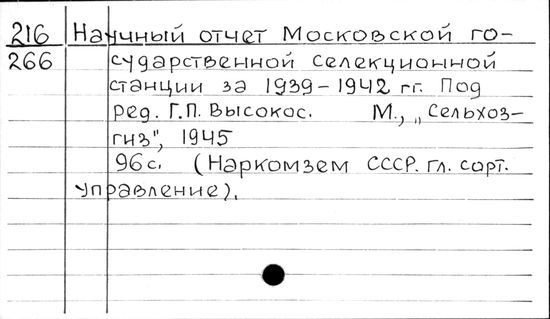 216 Научный отчет Московской го-
266 сударственной селекционной
станции за 1939-1942 гг. Под
ред. Г.П. Высокос. М., „Сельхоз-
гиз", 1945
96с. (Наркомзем СССР. гл. сорт.
управление).